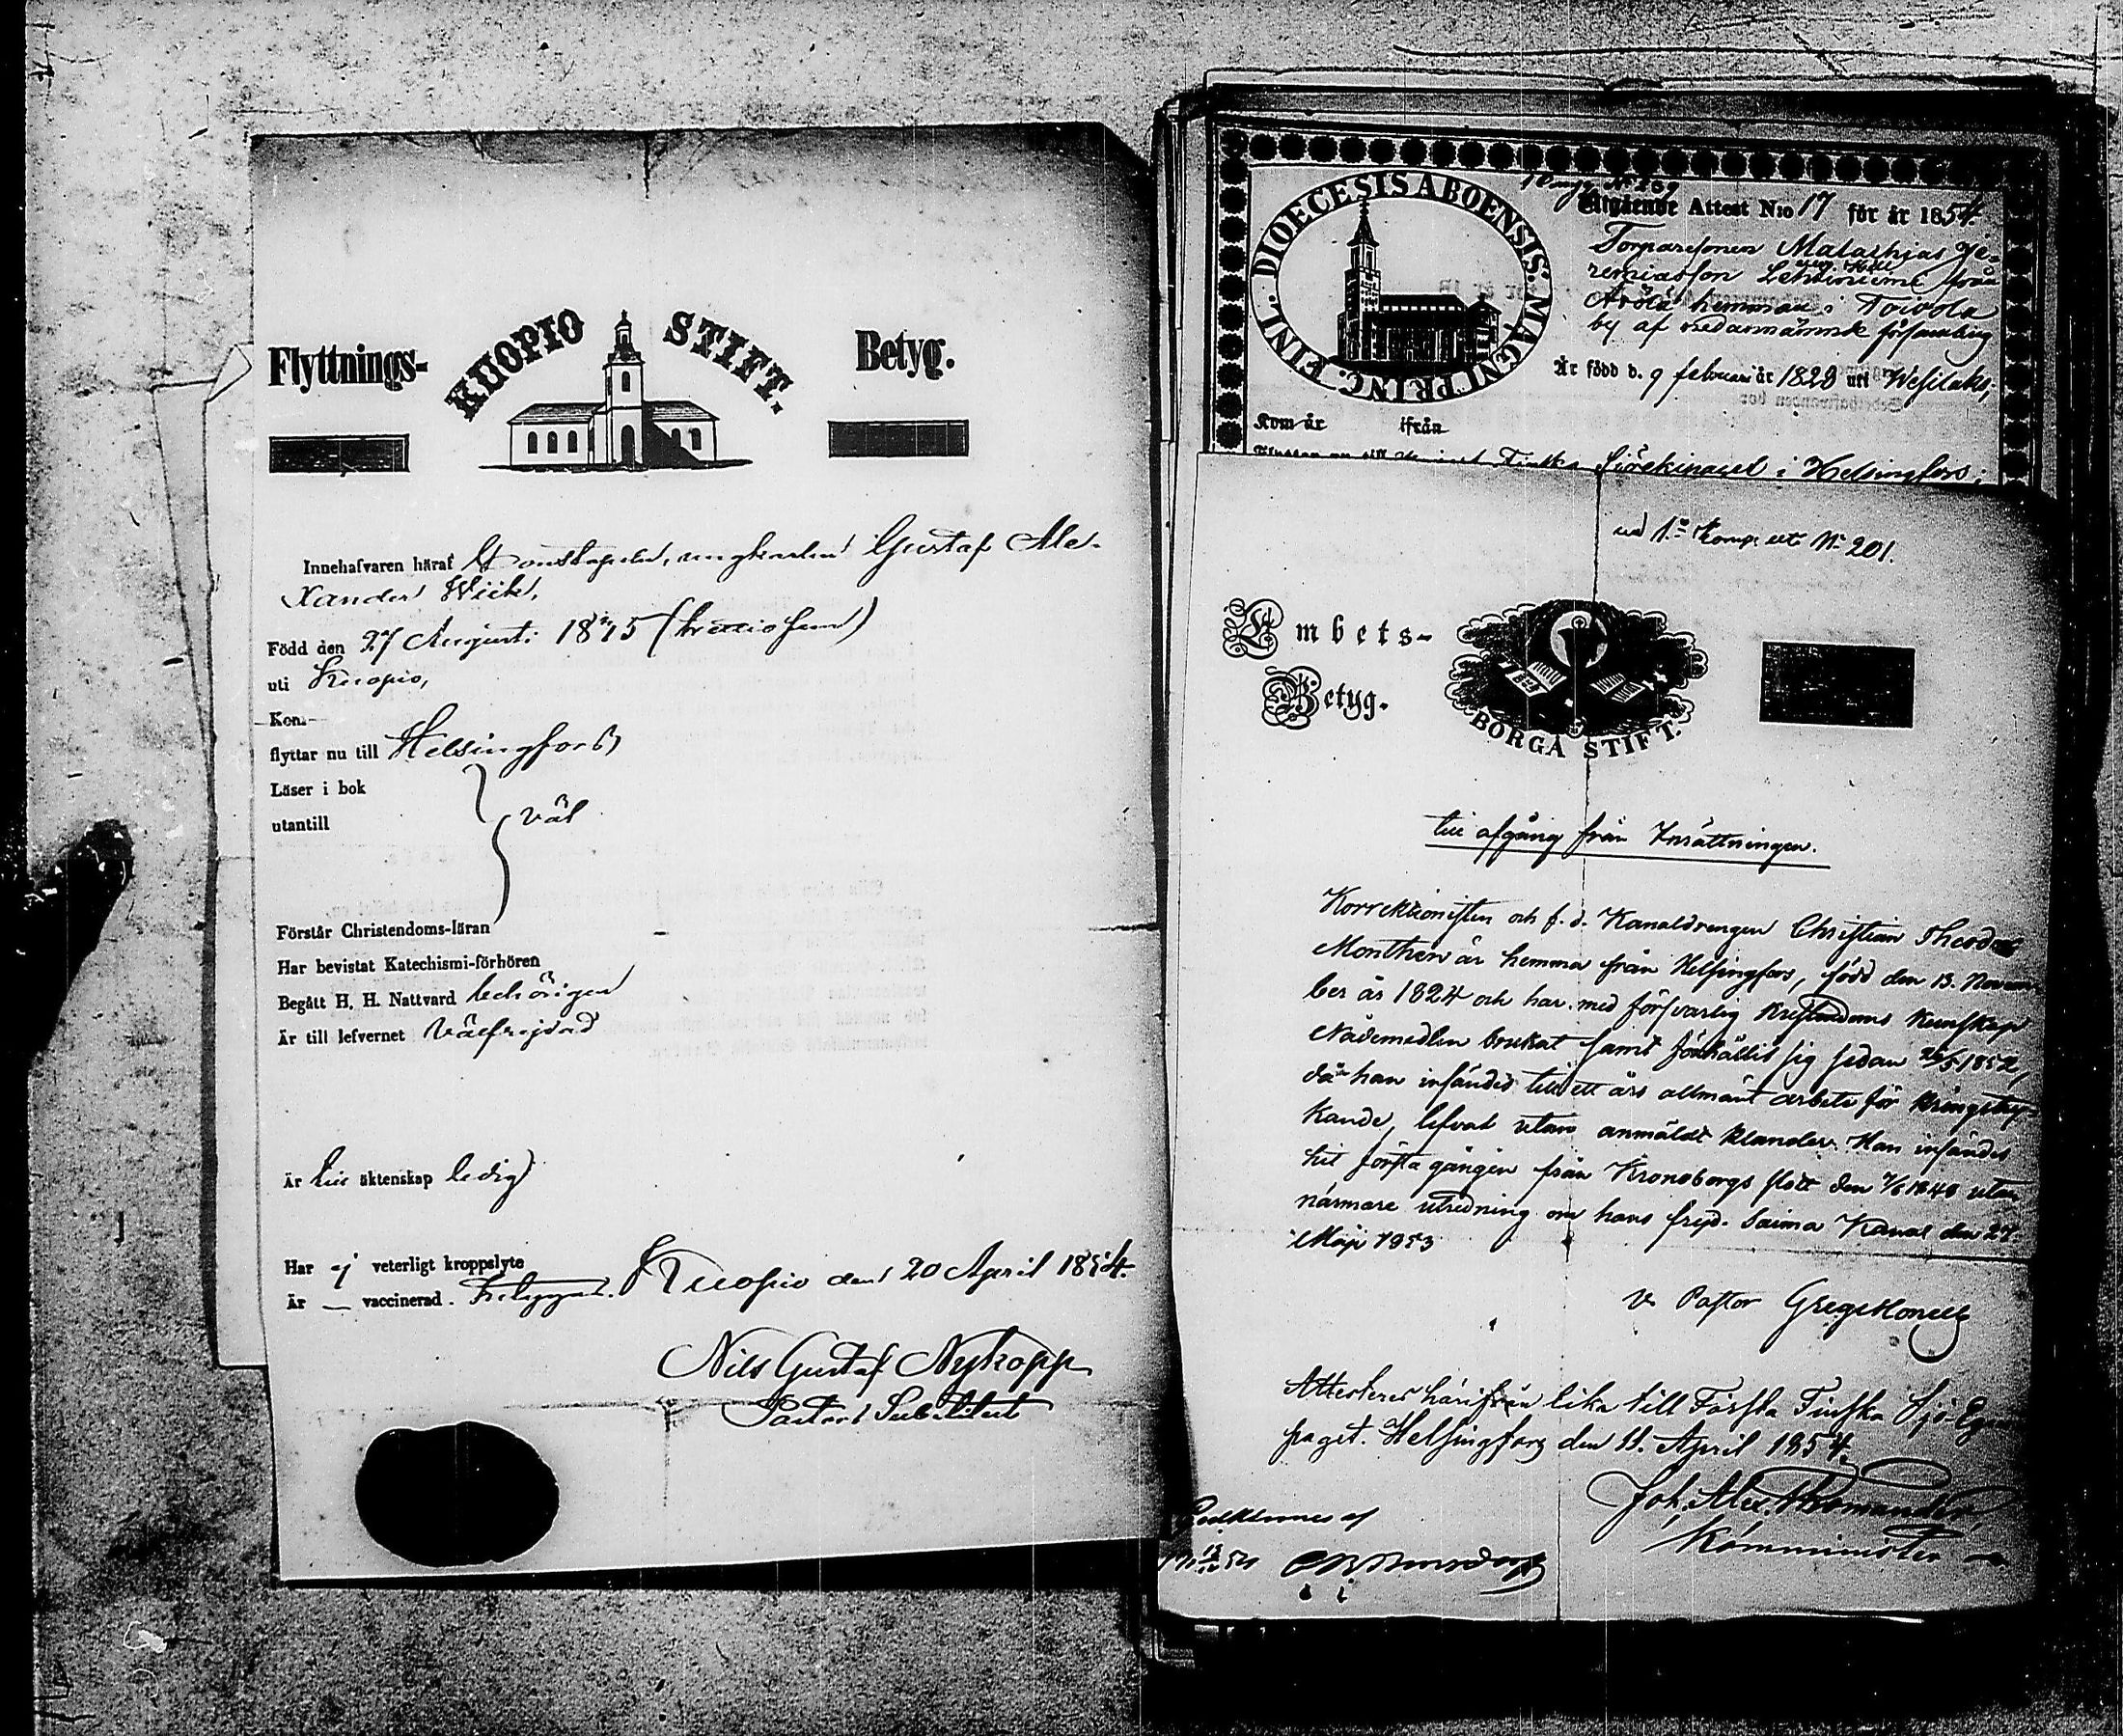 Flyttnings-
KUOPIO STIFT.
Betyg.
Innehafvaren häraf Constapeln, ungkarlen Gustaf Ale-
xander Wiik,
Född den 27 Augusti 1815 (femton)
uti Kuopio,
Kom
flyttar nu till Helsingfors
Läser i bok
utantill
väl
Förstår Christendoms-läran
Har bevistat Katechismi-förhören
Begått H. H. Nattvard behörigen
Är till lefvernet välfrejdad
Är till äktenskap ledig
Har ej veterligt kroppslyte
Är — vaccinerad.
Kuopio den 20 April 1854.
Nils Gustaf Nykopp
Pastors Substitut
FINL. DIOECESIS ABOENSIS. MAGNI PRINC.
Utgående Attest N:o 17 för år 1854.
Torparesonen Malachias Je-
remiasson Lehtiniemi från
hemman i Toivola
by af nedannämnde församling
Är född d. 9 februari år 1829 uti Wesilaks,
Kom år ifrån
Flyttar nu till Finska Sjöekipaget i Helsingfors;
vid 1:a Komp. N:o 201.
Embets-
Betyg.
BORGÅ STIFT.
till afgång från Inrättningen.
Korrektionisten och f. d. Kanaldrengen Christian Theodor
Monthen är hemma från Helsingfors, född den 13. Novem-
ber år 1824 och har med försvarlig Kristendoms Kunskap
Nådemedlen brukat samt förhållit sig sedan 1852,
då han insändes till ett års allmänt arbete för kringstry-
kande, lefvat utan anmäldt klander. Han insändes
hit första gången från Kronoborgs slott den 1848 utan
närmare utredning om hans frejd. Saima Kanal den 27
Maji 1853
V. Pastor
Attesteras härifrån lika till Första Finska Sjö Eqvi-
paget. Helsingfors den 11. April 1854.
Joh. Alex.
Komminister